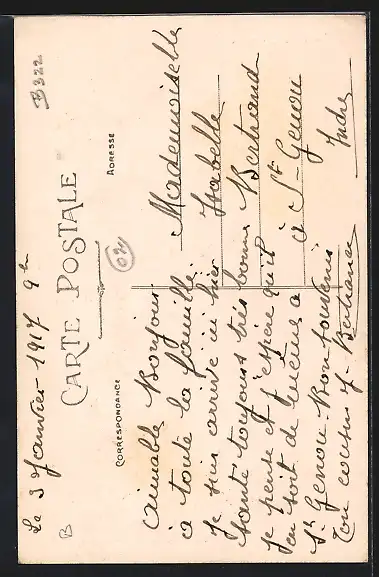 Le 3 Janvier 1917 9h
CARTE POSTALE
CORRESPONDANCE
ADRESSE
B322
B
Aimable Bonjour
a toute la famille.
Je suis arrivé ici hier
Santé toujours très bonne
Je pense et j'espère qu'il
en soit de même a
St Genou. Bon souvenir
Ton cousin J. Bertrand
Mademoiselle
Isabelle
Bertrand
à St-Genou
Indre